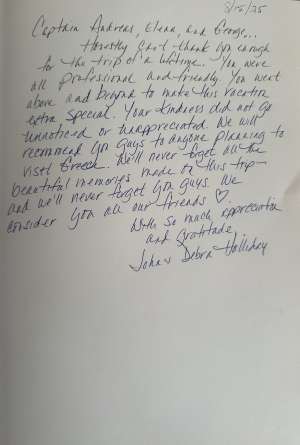 8/15/25
Captain Andreas, Elena, and George...
Honestly can't thank you enough
for the trip of a lifetime... You were
all professional and friendly. You went
above and beyond to make this vacation
extra special. Your kindness did not go
unnoticed or unappreciated. We will
recomend you guys to anyone planning to
visit Greece. We'll never forget all the
beautiful memories made on this trip-
and we'll never forget you guys. We
consider you all our friends ♡.
With so much appreciation
and gratitude,
John & Debra Holliday